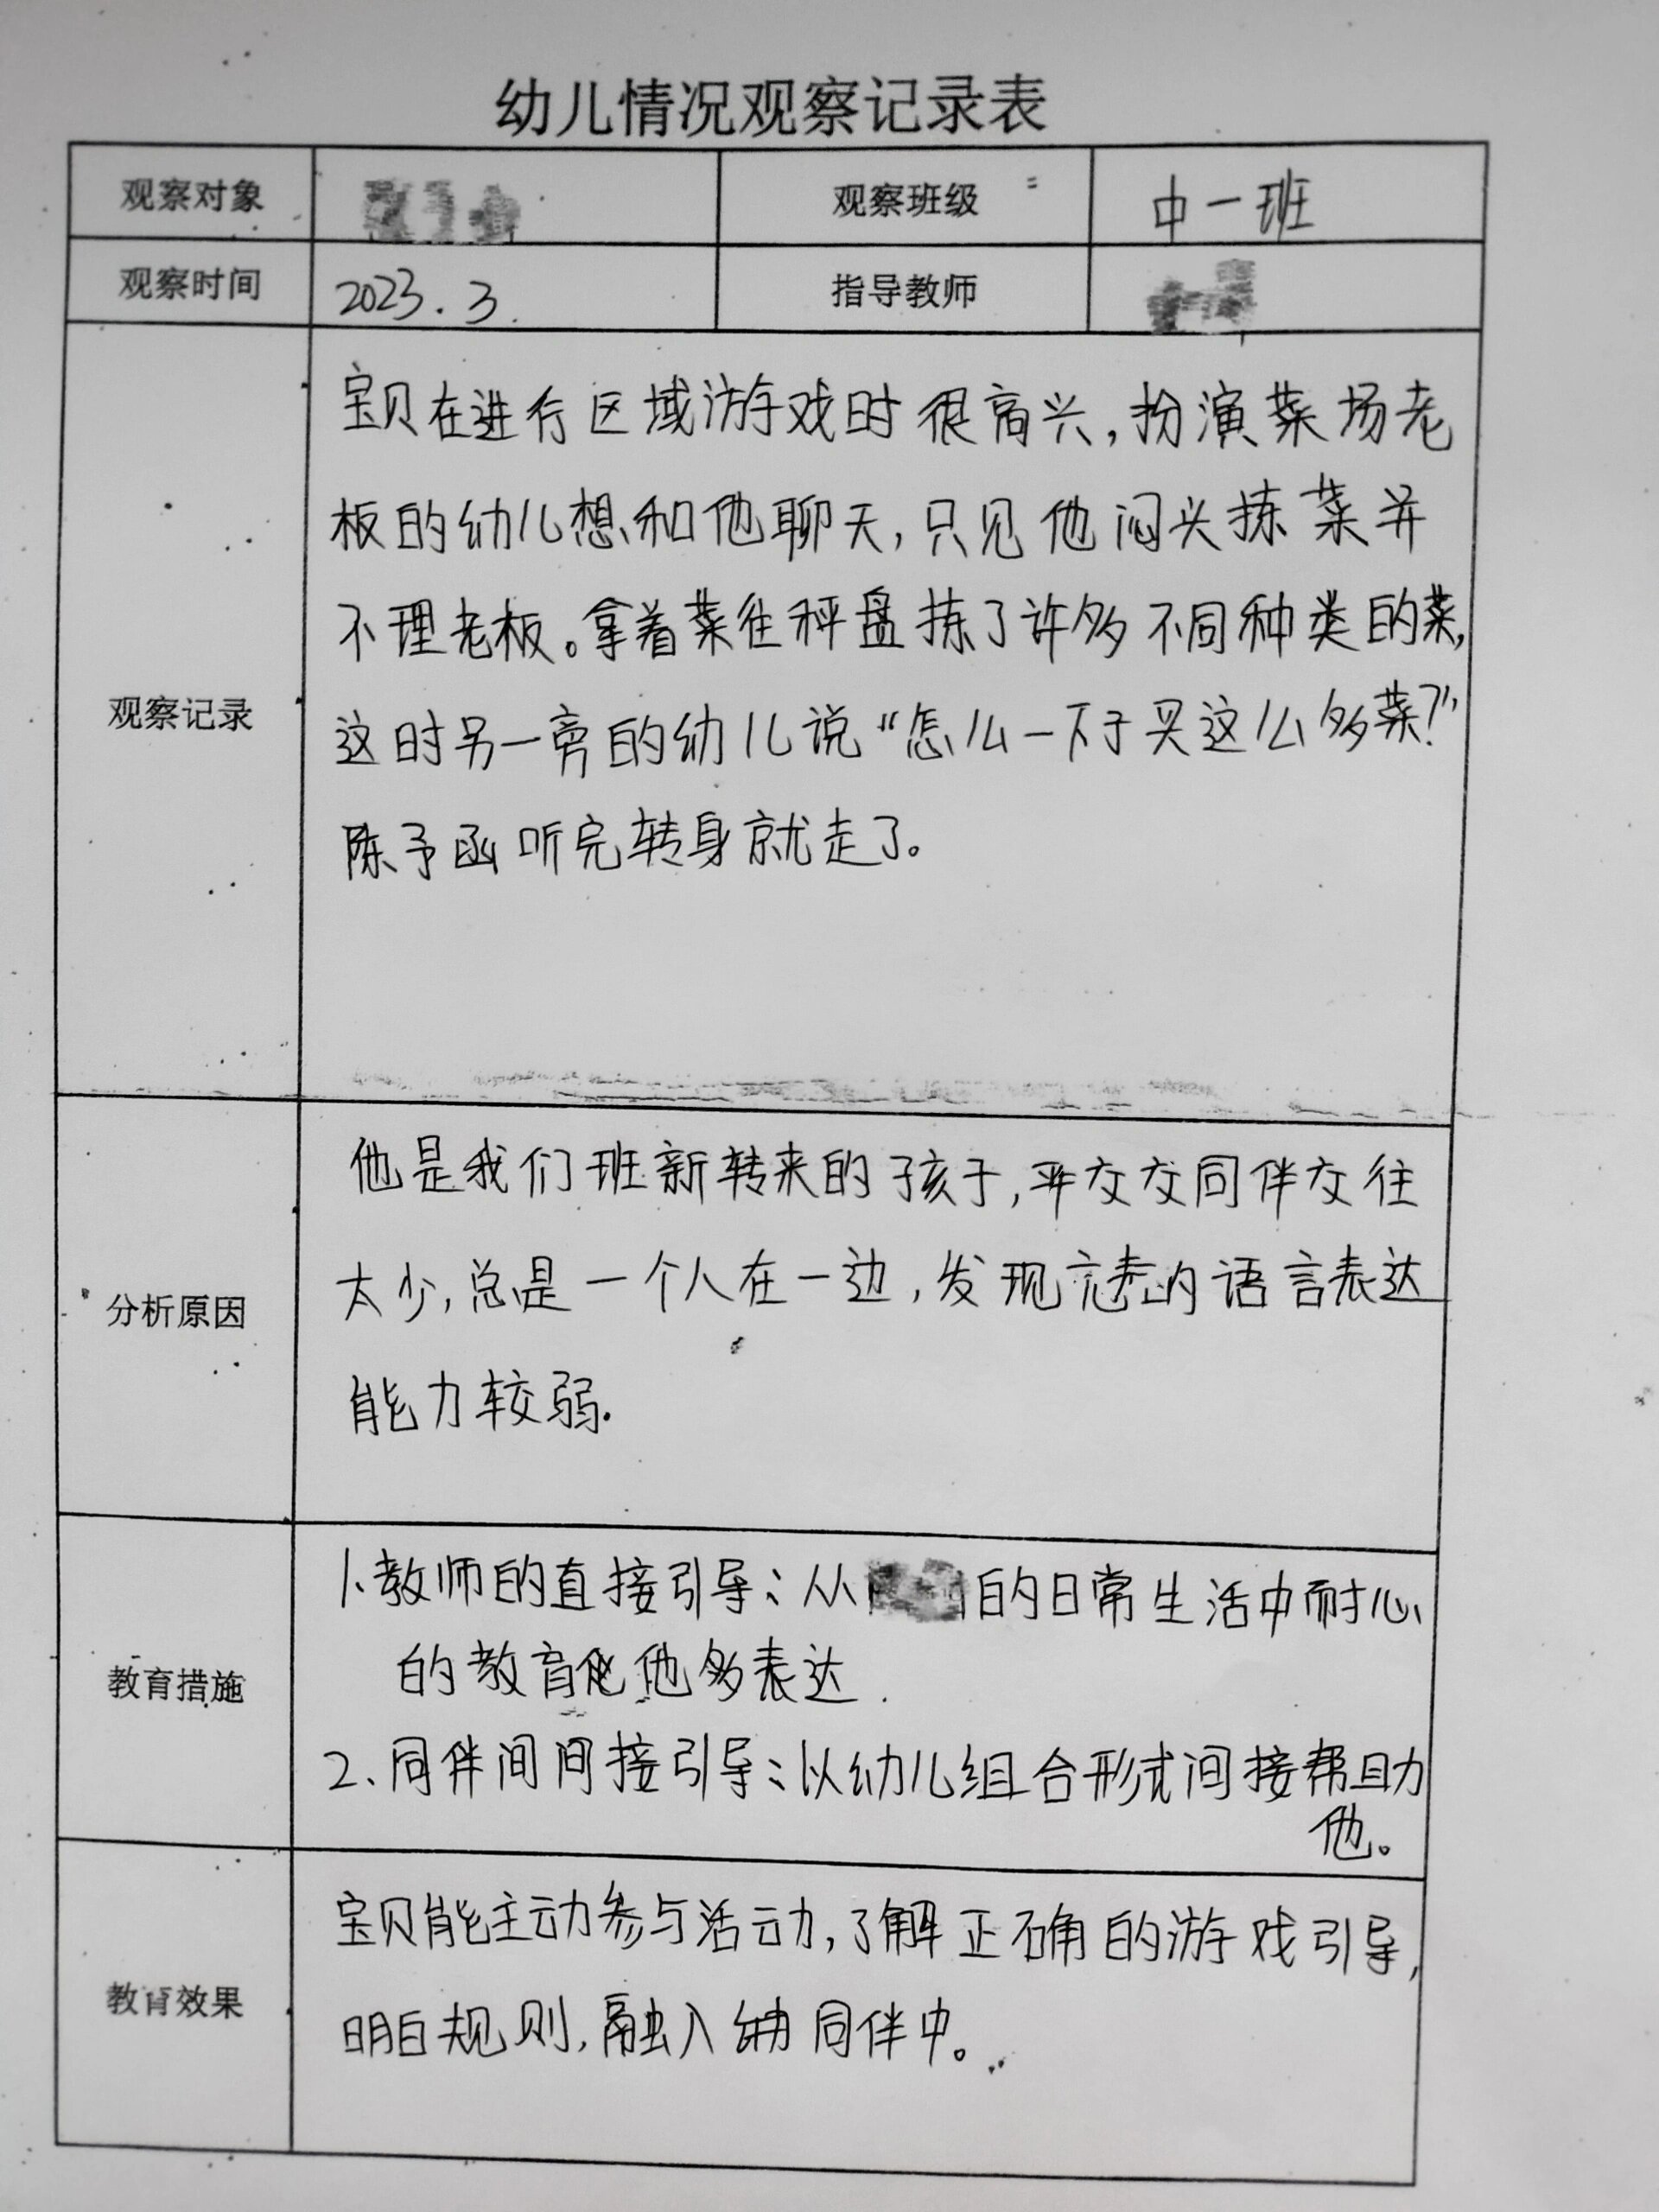 幼儿情况观察记录表
观察对象 观察班级 中一班
观察时间 2023.3. 指导教师
观察记录
宝贝在进行区域游戏时很高兴,扮演菜场老
板的幼儿想和他聊天,只见他闷头拣菜并
不理老板。拿着菜往秤盘拣了许多不同种类的菜,
这时另一旁的幼儿说“怎么一下子买这么多菜?”
陈予函听完转身就走了。
分析原因
他是我们班新转来的孩子,同伴交往
太少,总是一个人在一边,发现语言表达
能力较弱.
教育措施
1.教师的直接引导:从的日常生活中耐心
的教育他多表达.
2、同伴间间接引导:以幼儿组合形式间接帮助
他。
教育效果
宝贝能主动参与活动,了解正确的游戏引导,
明白规则,融入同伴中。